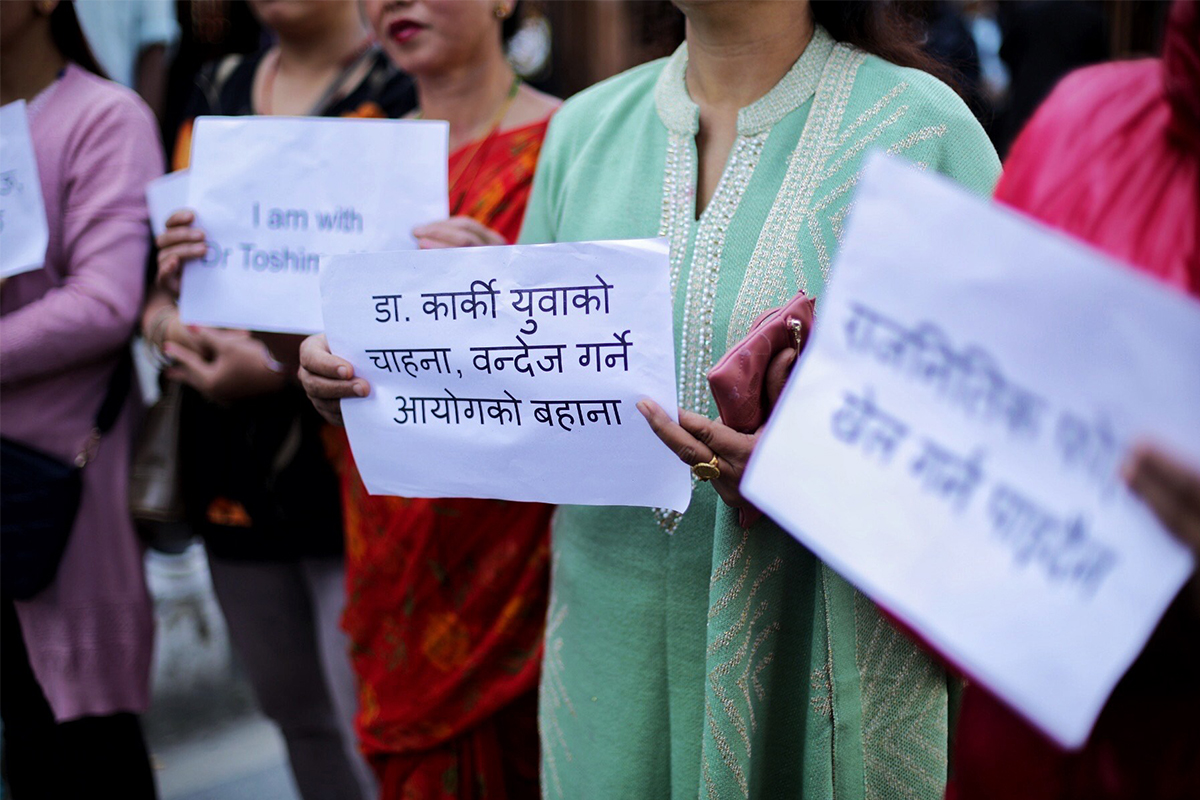 I am with
Dr Toshim
डा. कार्की युवाको
चाहना, वन्देज गर्ने
आयोगको बहाना
राजनितिक
खेल गर्न पाइदैन